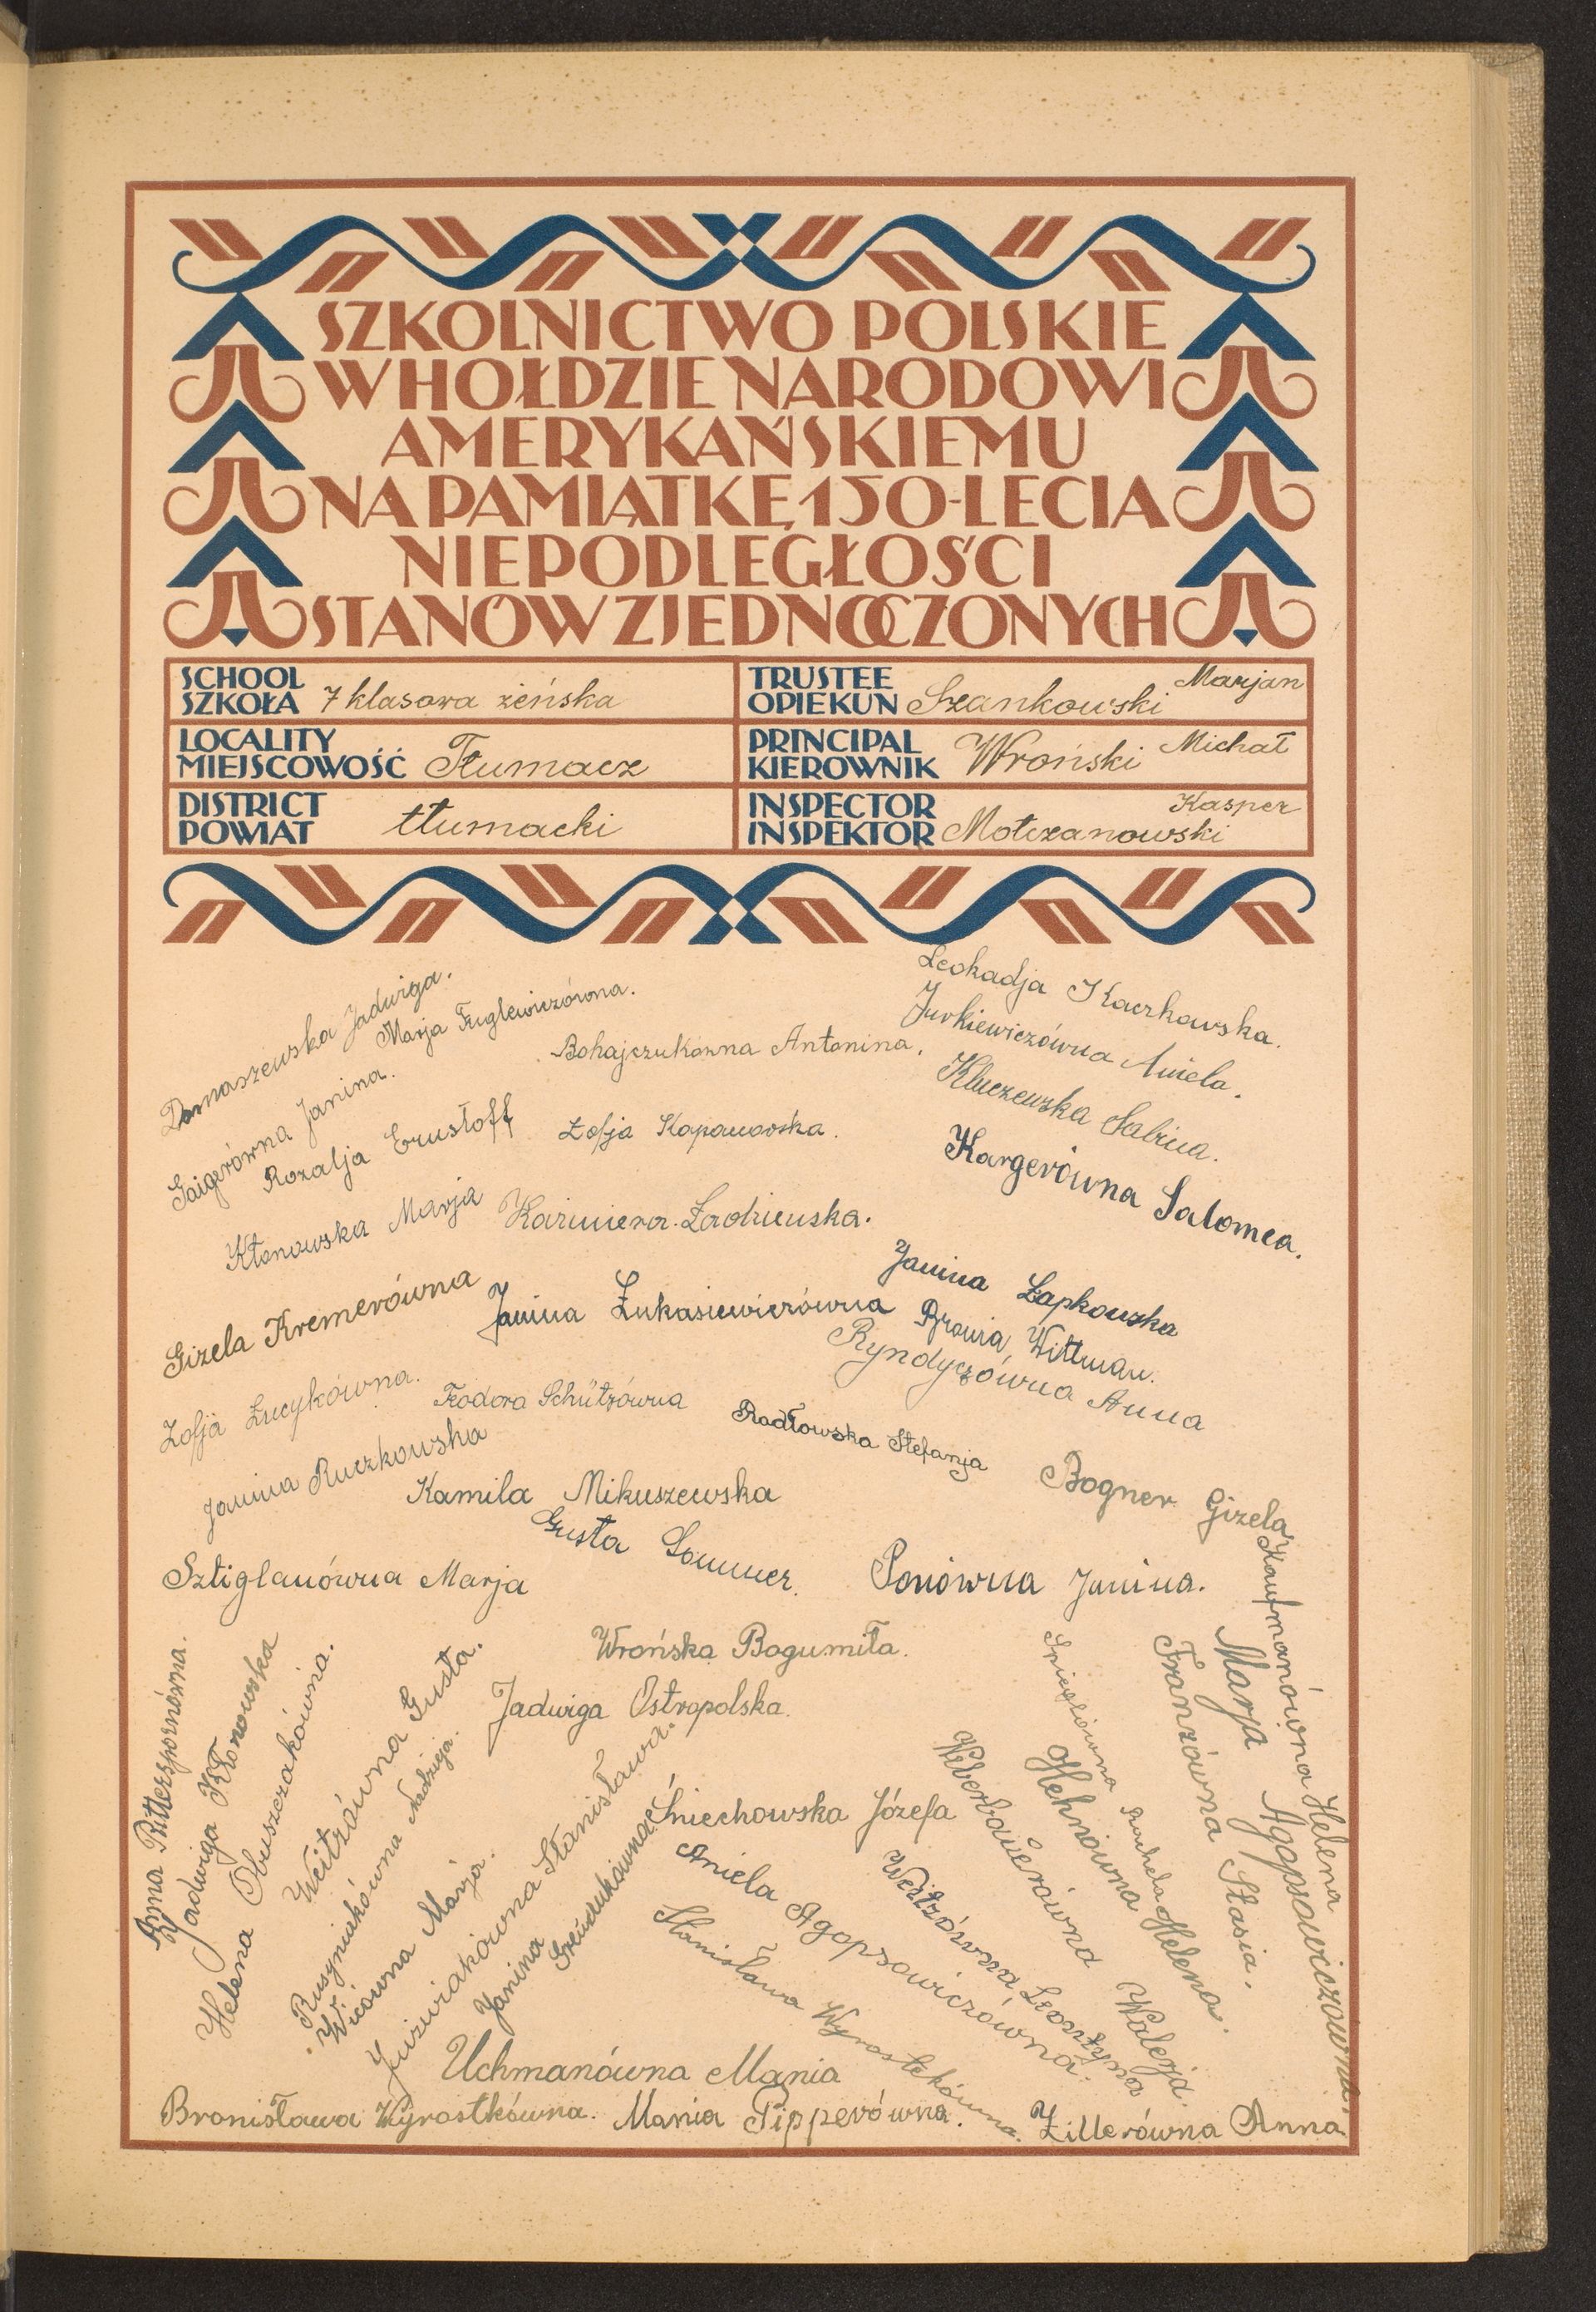 SZKOLNICTWO POLSKIE
W HOŁDZIE NARODOWI
AMERYKAŃSKIEMU
NA PAMIĄTKĘ 150-LECIA
NIEPODLEGŁOŚCI
STANÓW ZJEDNOCZONYCH
SCHOOL
SZKOŁA 7 klasowa żeńska
TRUSTEE
OPIEKUN Szankowski Marjan
LOCALITY
MIEJSCOWOŚĆ Tłumacz
PRINCIPAL
KIEROWNIK Wroński Michał
DISTRICT
POWIAT tłumacki
INSPECTOR
INSPEKTOR Mołczanowski Kasper
Damaszewska Jadwiga.
Marja Fuglewiczówna.
Bohajczukówna Antonina.
Leokadja Kaczkowska.
Jurkiewiczówna Aniela.
Gaigerówna Janina.
Rozalja Ernstoff
Zofja Kapanowska.
Kluczewska Sabina.
Kargerówna Salomea.
Kłonowska Marja
Kazimiera Zadzieuska.
Gizela Kremerówna
Janina Łukasiewiczówna
Janina Łapkowska
Bronia Wittman.
Ryndyczówna Anna
Zofja Łucykówna.
Teodora Schützówna
Radłowska Stefanja
Janina Ruczkowska
Kamila Mikuszewska
Bogner Gizela
Gusta Sommer.
Sztiglanówna Marja
Poniówna Janina.
Kaufmanówna Helena
Wrońska Bogumiła.
Jadwiga Ostropolska.
Anna Rittersporнówna.
Jadwiga Kłonowska
Helena Obuszczakówna.
Weitzówna Gusta.
Rusyniakówna Nadzieja.
Wicówna Marja.
Juzwiakówna Stanisława.
Janina Greudukówna
Śniechowska Józefa
Aniela Agopsowiczówna.
Stanisława Wyrostkówna.
Weitzówna Leontyna
Weberbauerówna Walerja.
Hehnówna Helena.
Spieglówna Rachela
Franzówna Stasia.
Marja Agopsowiczówna.
Uchmanówna Mania
Bronisława Wyrostkówna.
Mania Pipperówna.
Zillerówna Anna